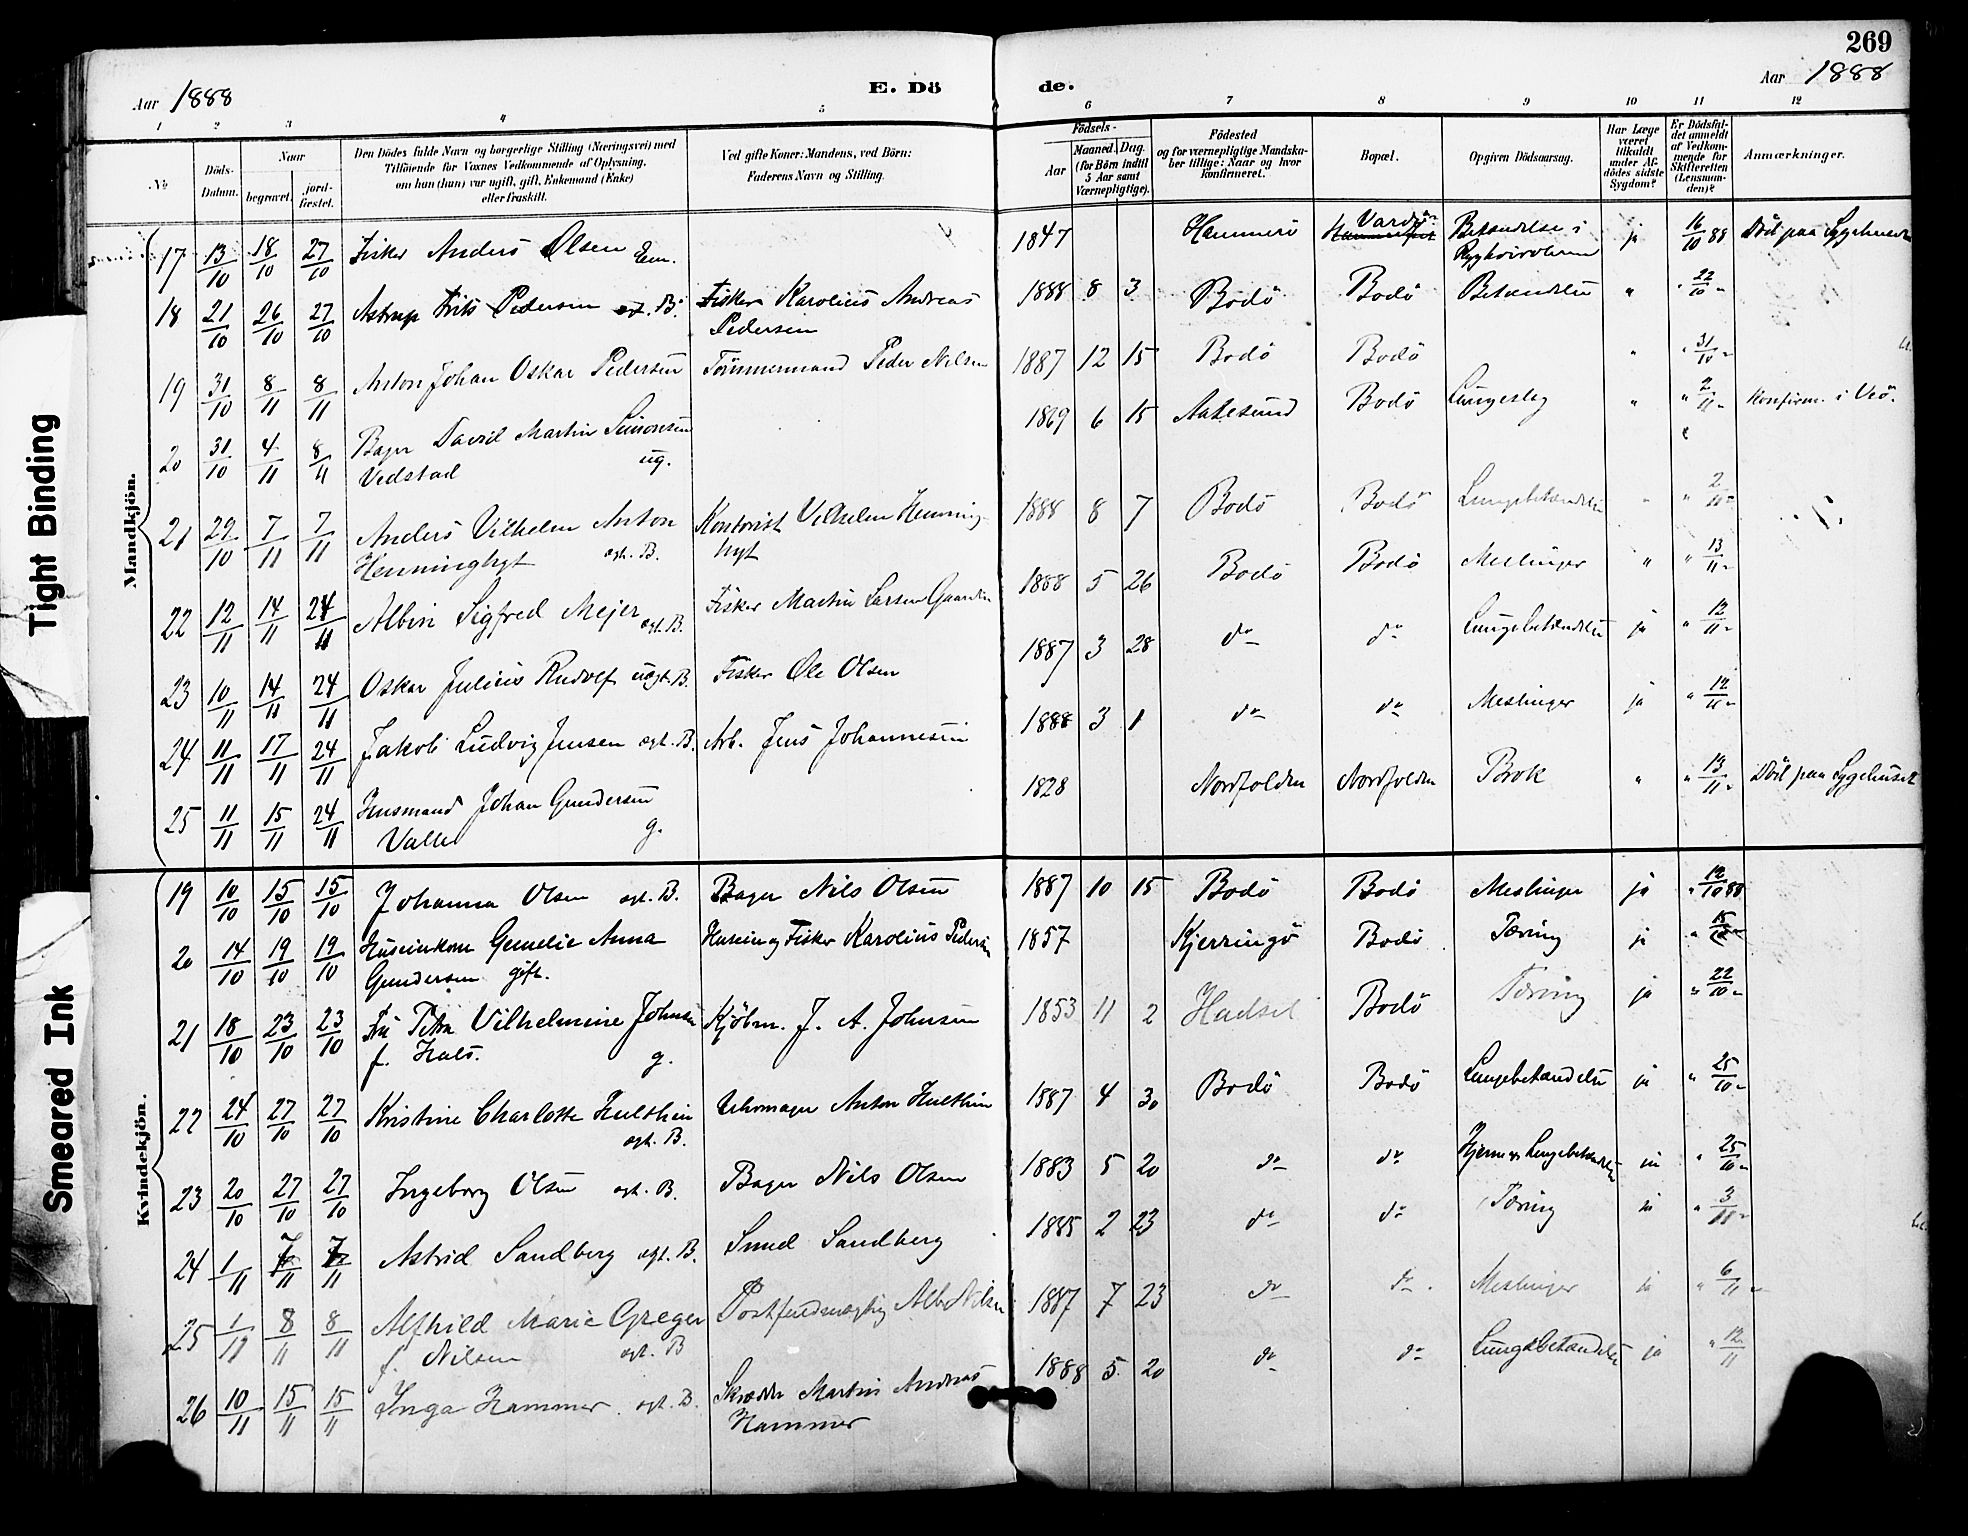 269
Aar 1888
E. Dö
de.
Aar 1888
1 2 3 4 5 6 7 8 9 10 11 12
No
Döds-Datum.
Naar
begravet.
jord-fæstet.
Den Dödes fulde Navn og borgerlige Stilling (Næringsvei) med
Tilföiende for Voxnes Vedkommende af Oplysning,
om han (hun) var ugift, gift, Enkemand (Enke)
eller fraskilt.
Ved gifte Koner: Mandens, ved Börn:
Faderens Navn og Stilling.
Födsels-
Aar
Maaned. Dag.
(for Börn indtil
5 Aar samt
Værnepligtige).
Födested
og for værnepligtige Mandska-
ber tillige: Naar og hvor
konfirmeret.
Bopæl.
Opgiven Dödsaarsag.
Har Læge
været
tilkaldt
under Af-
dödes sidste
Sygdom?
Er Dödsfal-
det anmeldt
af Vedkom-
mende for
Skifteretten
(Lensman-
den)?
Anmærkninger.
Mandkjön.
17 13/10 18/10 27/10 Fisker Anders Olsen Em. 1847 Hammerö Vardö Betændelse i ja 16/10 88 Död paa Sygehuset
18 21/10 26/10 27/10 Astrup Frits Pedersen B. Fisker Karolius Andreas 1888 8 3 Bodö Bodö Betændelse " 22/10
Pedersen
19 31/10 8/11 8/11 Anton Johan Oskar Pedersen Tömmermand Peder Nilsen 1887 12 15 Bodö Bodö " 31/10
20 31/10 4/11 8/11 Bager David Martin Simonsen 1869 6 15 Aalesund Bodö " 2/11 Konfirm. i
Vedstad ug.
21 29/10 7/11 7/11 Anders Vilhelm Anton Kontorist Vilhelm Henning- 1888 8 7 Bodö Bodö Lungebetændelse " 2/11
Henninghyt ægt. B. hyt
22 12/11 14/11 24/11 Albin Sigfred Mejer ægt. B. Fisker Martin Larsen 1888 5 26 Bodö Bodö Meslinger " 13/11
23 10/11 14/11 24/11 Oskar Julius Rudolf uægt. B. Fisker Ole Olsen 1887 3 28 do do Lungebetændelse ja 12/11
24 11/11 17/11 24/11 Jakob Ludvig Jensen ægt. B. Arb. Jens Johannesen 1888 3 1 do do Meslinger ja 12/11
25 11/11 15/11 24/11 Husmand Johan Gundersen 1828 Nordfolden Nordfolden Brok " 13/11 Död paa Sygehuset
Valle g.
Kvindekjön.
19 10/10 15/10 15/10 Johanna Olsen ægt. B. Bager Nils Olsen 1887 10 15 Bodö Bodö Meslinger ja 12/10 88
20 14/10 19/10 19/10 Anna Fisker Karolius Pedersen 1857 Kjerringö Bodö Tæring ja
Gundersen gift.
21 18/10 23/10 23/10 Fru Petra Vilhelmine Johnsen Kjöbm. J. A. Johnsen 1853 11 2 Hadsel Bodö Tæring ja 22/10
f. Hals. g.
22 24/10 27/10 27/10 Kristine Charlotte Hulthin Urhmager Anton Hulthin 1887 4 30 Bodö Bodö Lungebetændelse ja 25/10
ægt. B.
23 20/10 27/10 27/10 Ingeborg Olsen ægt. B. Bager Nils Olsen 1883 5 20 do do Hjerne og Lungebetændelse ja 25/10
24 1/11 7/11 7/11 Astrid Sandberg ægt. B. Smed Sandberg 1885 2 23 do do Tæring ja 3/11
25 1/11 8/11 8/11 Alfhild Marie Greger Postfuldmægtig Alb. Nilsen 1887 7 23 do do Meslinger ja 6/11
f. Nilsen ægt. B
26 10/11 15/11 15/11 Inga Hammer ægt. B. Skrædder Martin Andreas 1888 5 20 do do Lungebetændelse ja 12/11
Hammer
Tight Binding
Smeared Ink